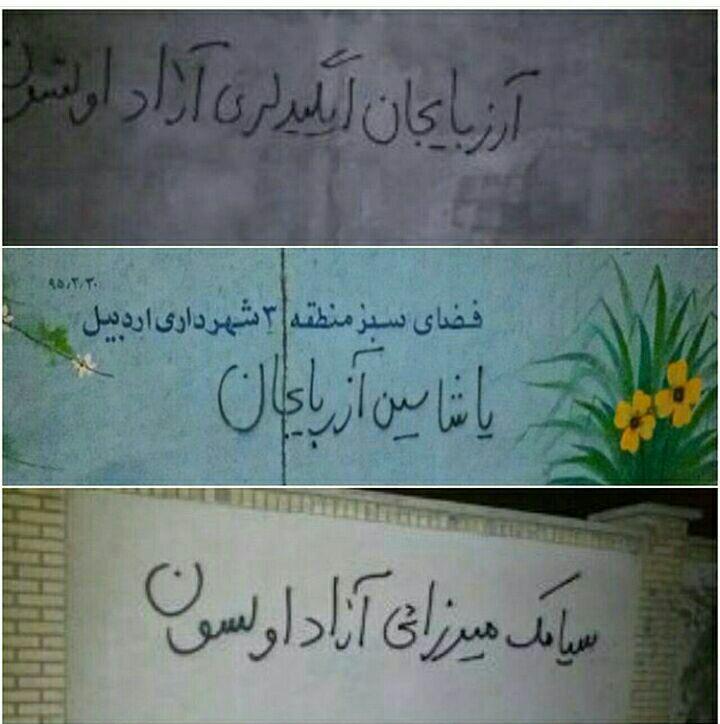 آرزبایجان ایگیدلری آزاد اولسون
۹۵/۲/۳۰
فضای سبز منطقه ۳ شهرداری اردبیل
یاشاسین آزربایجان
سیامک میرزائی آزاد اولسون